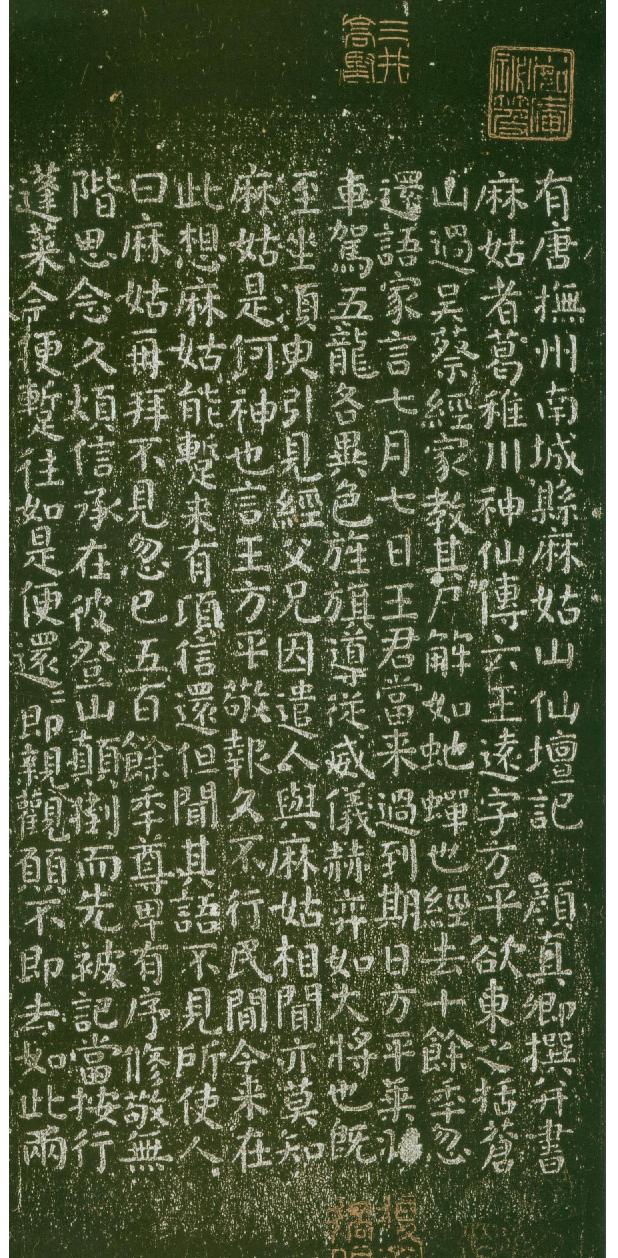 有唐撫州南城縣麻姑山仙壇記 顏真卿撰并書
麻姑者葛稚川神仙傳云王遠字方平欲東之括蒼
山過吳蔡經家教其尸解如虵蟬也經去十餘年忽
還語家言七月七日王君當来過到期日方平乘
車駕五龍各異色旌旗導從威儀赫弈如大將也既
至坐須臾引見經父兄因遣人與麻姑相聞亦莫知
麻姑是何神也言王方平敬報久不行民間今来在
此想麻姑能蹔来有頃信還但聞其語不見所使人
曰麻姑再拜不見忽已五百餘年尊卑有序修敬無
階思念久煩信承在彼登山顛倒而先被記當按行
蓬萊今便蹔往如是便還還即親觀願不即去如此兩
三井
高堅